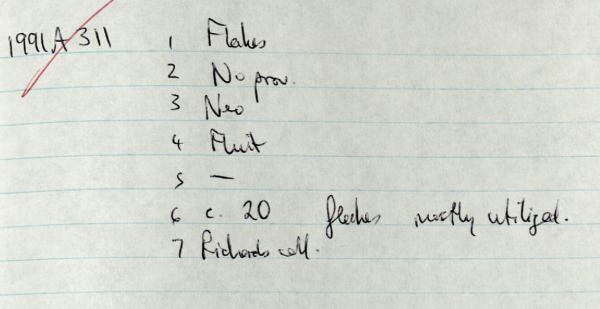 1991A 311 1 Flakes
2 No prov.
3 Neo
4 Fluit
5 —
6 c. 20 fleckes mostly utilized.
7 Richards coll.